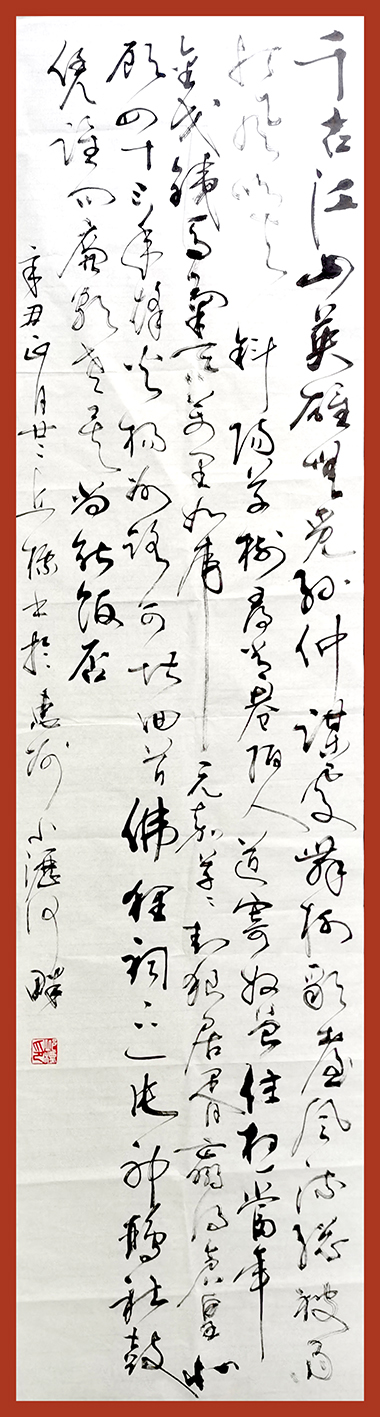 千古江山英雄無覓孫仲謀處舞榭歌臺風流總被雨
打風吹去 斜陽草樹尋常巷陌人道寄奴曾住想當年
金戈鐵馬氣吞萬里如虎 元嘉草〻封狼居胥贏得倉皇北
顧四十三年烽火揚州路可堪回首佛狸祠下一片神鴉社鼓
憑誰問廉頗老矣尚能飯否
辛丑正月廿二丘書於惠州小瀝河畔